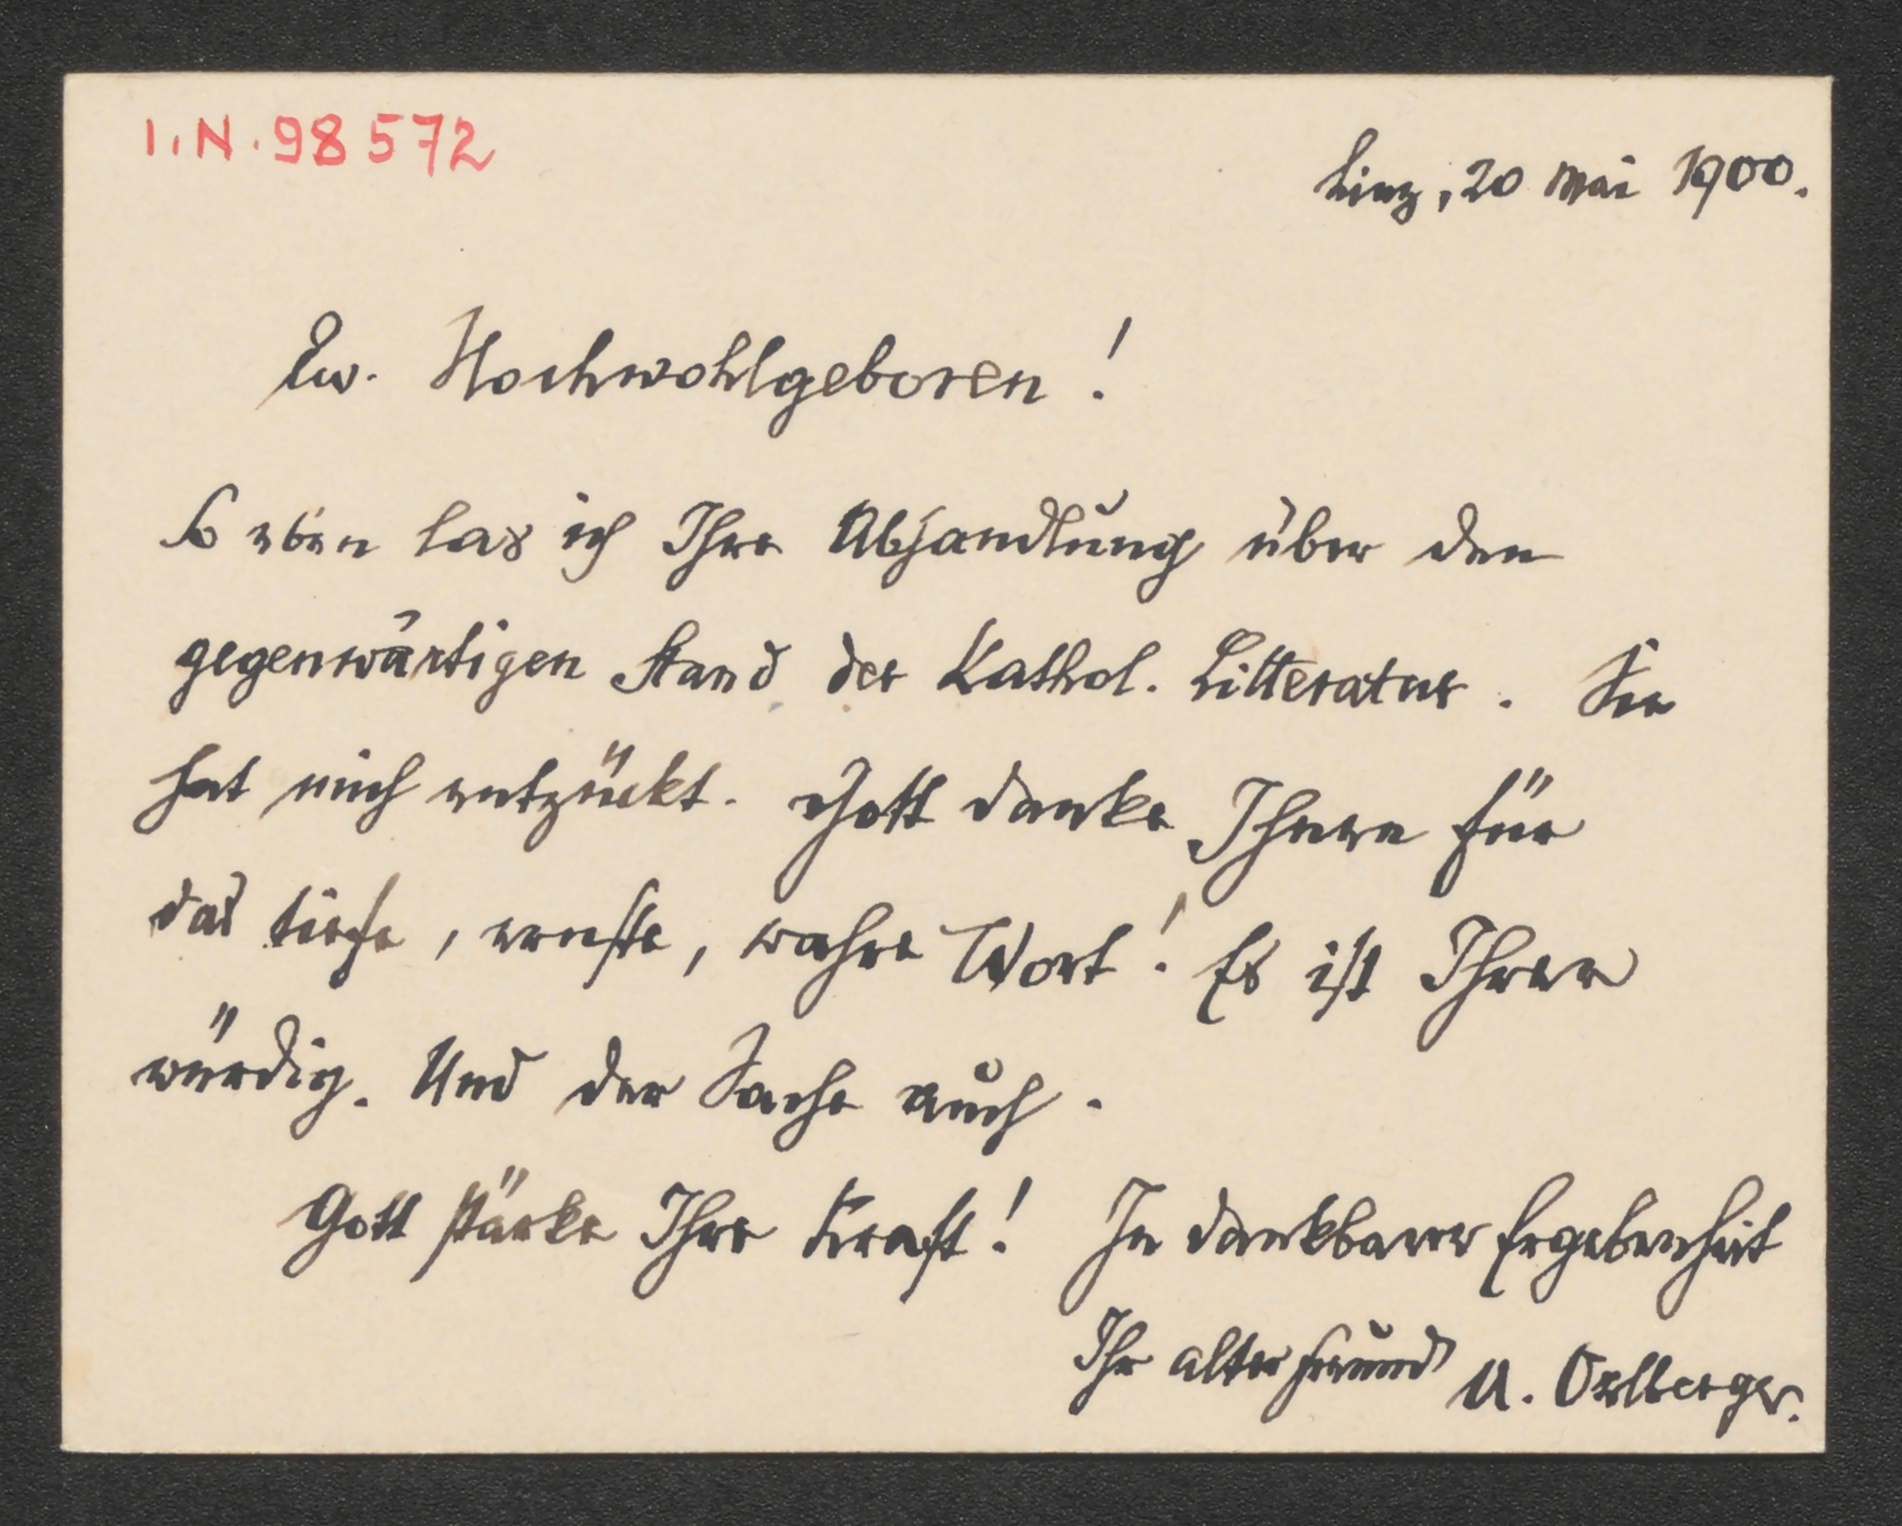 I.N. 98572
Linz, 20 Mai 1900.
Ew. Hochwohlgeboren!
So eben las ich Ihre Abhandlung über den
gegenwärtigen Stand der Kathol. Litteratur. Sie
hat mich entzückt. Gott danke Ihnen für
das tiefe, ernste, wahre Wort! Es ist Ihrer
würdig. Und der Sache auch.
Gott stärke Ihre Kraft! In dankbarer Ergebenheit
Ihr alter Freund